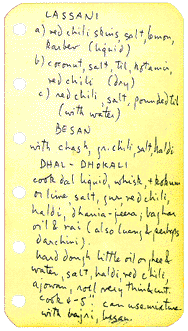 LASSANI
a) red chili skins, salt, lemon,
(liquid)
b) coconut, salt, til, kotamir,
red chili (dry)
c) red chili, salt, pounded til
(with water)
BESAN
with chash, gr. chili, salt, haldi
DHAL-DHOKALI
cook dal liquid, whisk, + kokum
or lime, salt, gur, red chili,
haldi, dhania-jeera, baghar
oil & rai (also luving & perhaps
darchini).
hard dough little oil or ghee &
water, salt, haldi, red chili,
ajowan, roll very thin & cut.
cook 6-5" can use mixture
with bajri, besan.